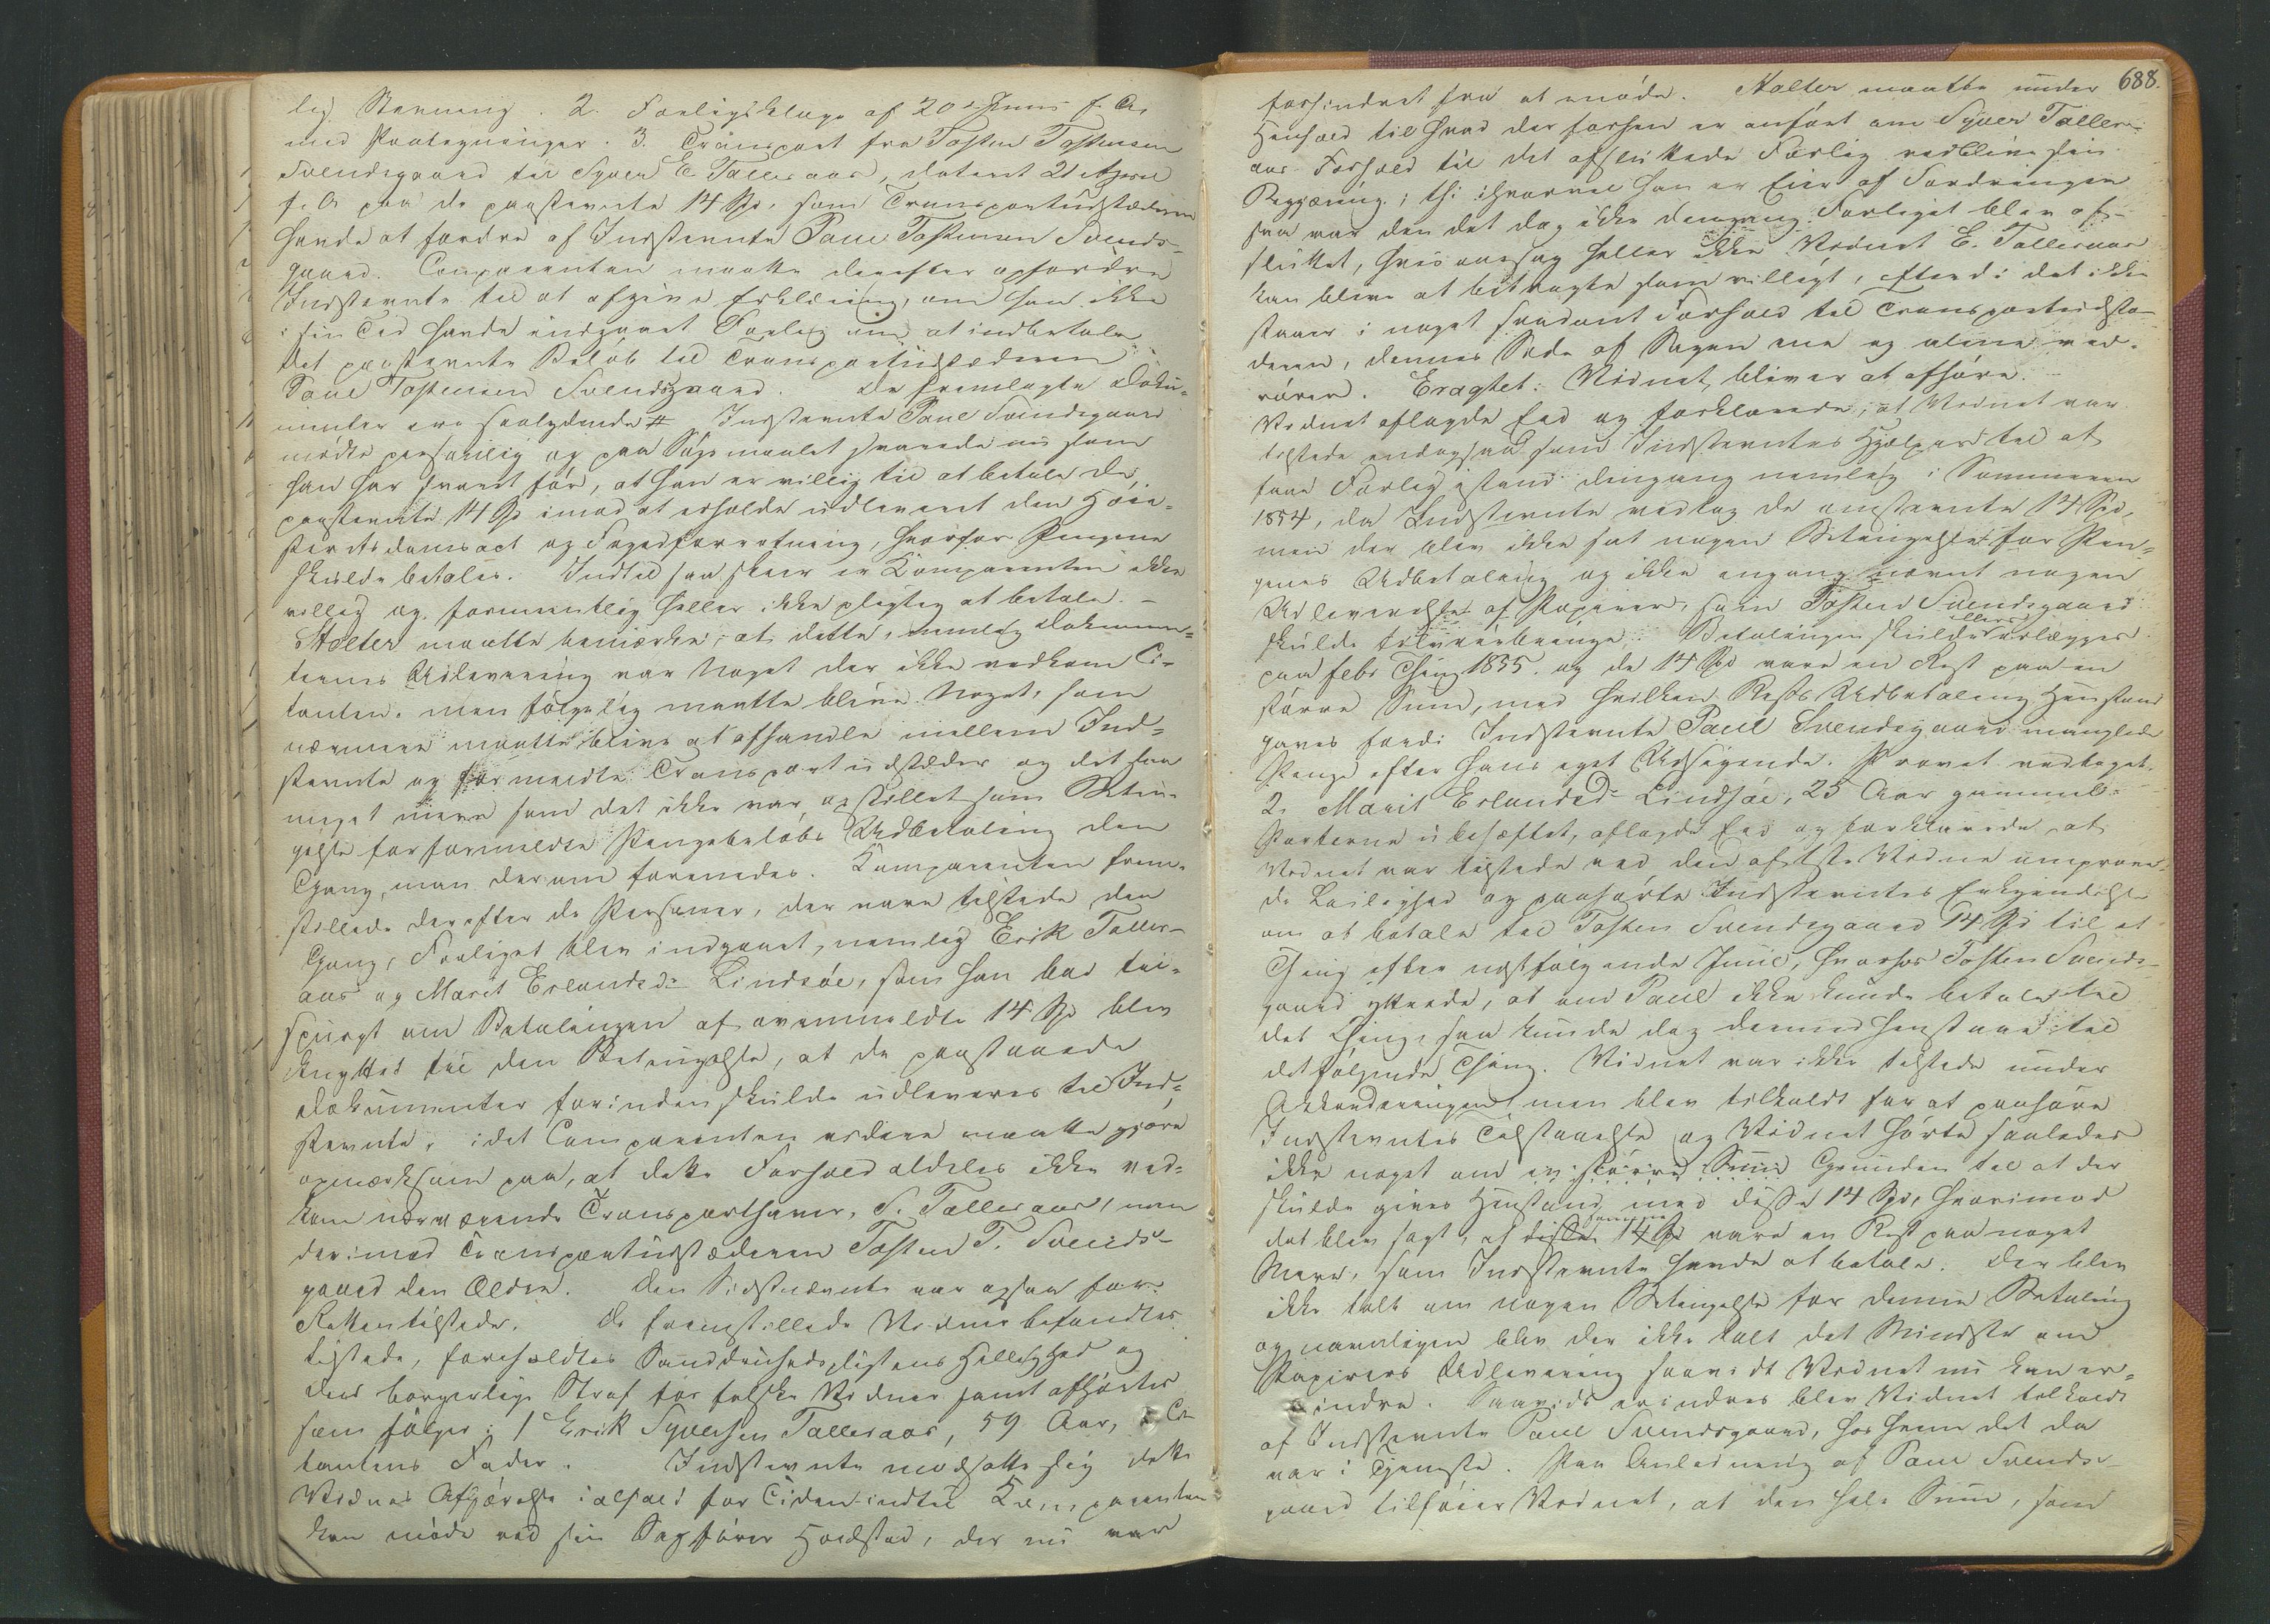 lig Stævning. 2. Forligsklage af 20de Juni f. A.
med Paategninger. 3. Transport fra Tosten Tostensen
Svendsgaard til Syver E. Tallesaas, dateret 21 April
f. A. paa de paastevnte 14 Spd. som Transportudstæderen
havde at fordre af Indstevnte Paul Tostensen Svends-
gaard. Comparenten maatte derefter opfordre
Indstevnte til at afgive Erklæring, om han ikke
i sin Tid havde indgaaet Forlig om at indbetale
det paastevnte Beløb til Transportudstæderen
Tostensen Svendsgaard. De fremlagte Doku-
menter ere saalydende # Indstevnte Paul Svendsgaard
mødte personlig og paa Søgsmaalet svarede nu som
han har svaret før, at han er villig til at betale de
paastevnte 14 Spd imod at erholde udleveret den Høie-
steretsdomsact og Fogedforretning, hvorfor Pengene
skulde betales. Indtil saa skeer er Komparenten ikke
villig og formentlig heller ikke pligtig at betale. –
Stolter maatte bemærke, at dette, nemlig Dokumen-
ternes Udlevering var Noget der ikke vedkom Ci-
tanten, men følgelig maatte blive Noget, som
nærmere maatte blive at afhandle mellem Ind-
stevnte og formeldte Transportudstæder og det saa
meget mere som det ikke var opstillet som Betin-
gelse for formeldte Pengebeløbs Udbetaling den
Gang, man derom forenedes. Komparenten frem-
stillede derefter de Personer, der vare tilstede den
Gang, Forliget blev indgaaet, nemlig Erik Talles-
aas og Marit Erlandsd: Lindsøe, som han bad til-
spurgt om Betalingen af ovenmeldte 14 Spd blev
knyttet til den Betingelse, at de paastaaede
Dokumenter forinden skulde udleveres til Ind-
stevnte, idet Comparenten videre maatte gjøre
opmærksom paa, at dette Forhold aldeles ikke ved-
kom nærværende Transporthaver, S. Tallesaas, men
derimod Transportudstæderen Tosten T. Svends-
gaard den Ældre. Den Sidstnævnte var ogsaa for
Retten tilstede. De fremstillede Vidner befandtes
tilstede, foreholdtes Sanddruhedspligtens Hellighed og
den borgerlige Straf for falske Vidner samt afhørtes
som følger: 1 Erik Syversen Tallesaas, 59 Aar, Ci-
tantens Fader. Indstevnte modsatte sig dette
Vidnes Afhørelse ialfald for Tiden indtil Komparenten
kan møde ved sin Sagfører Hoelstad, der nu var
688.
forhindret fra at møde. Stolter maatte under
Henhold til hvad der forhen er anført om Syver Talles-
aas Forhold til det afsluttede Forlig vedblive sin
Begjæring; thi ihvorvel han er Eier af Fordringen
saa var den det dog ikke dengang Forliget blev af-
sluttet, hvis aarsag heller ikke Vidnet E. Tallesaas
kan blive at betragte som villigt, efterdi det ikke
staaer i noget saadant Forhold til Transportudstæ-
deren, dennes Side af Sagen ene og alene ved-
rører. Eragtet: Vidnet bliver at afhøre. –
Vidnet aflagde Eed og forklarede, at Vidnet var
tilstede endogsaa som Indstevntes Hjælper til at
faae Forlig istand dengang nemlig i Sommeren
1854, da Indstevnte vedtog de omstevnte 14 Spd,
men der blev ikke sat nogen Betingelse for Pen-
genes Udbetaling og ikke engang nævnt nogen
Udleverelse af Papirer, som Tosten Svendsgaard
skulde tilveiebringe. Betalingen skulde ellers erlægges
paa Febr Thing 1855. og de 14 Spd vare en Rest paa en
større Sum, med hvilken Rests Udbetaling Henstand
gaves fordi Indstevnte Paul Svendsgaard manglede
Penge efter hans eget Udsigende. Provet vedtaget.
2. Marit Erlandsd: Lindsøe, 25 Aar gammel
Parterne ubesvogret, aflagde Eed og forklarede, at
Vidnet var tilstede ved den af 1ste Vidne omprove-
de Leilighed og paahørte Indstevntes Erkjendelse
om at betale til Tosten Svendsgaard 14 Spd til et
Thing efter nestfølgende Juul, hvorhos Tosten Svends-
gaard yttrede, at om Paul ikke kunde betale til
det Thing, saa kunde dog dermed henstaae til
det følgende Thing. Vidnet var ikke tilstede under
Akkorderingen, men blev tilkaldt for at paahøre
Indstevntes Tilstaaelse og Vidnet hørte saaledes
ikke noget om en større Sum Grunden til at der
skulde gives Henstand med disse 14 Spd, hvorimod
det blev sagt, at disse 14 Spd vare en Rest paa noget
Mere, som Indstevnte havde at betale. Der blev
ikke talt om nogen Betingelse for denne Betaling
og navnligen blev der ikke talt det Mindste om
Papirers Udlevering saavidt Vidnet nu kan er-
indre. Saavidt erindres blev Vidnet tilkaldt
af Indstevnte Paul Svendsgaard, hos hvem det da
var i Tjeneste. Paa Anledning af Paul Svends-
gaard tilføier Vidnet, at den hele Sum, som